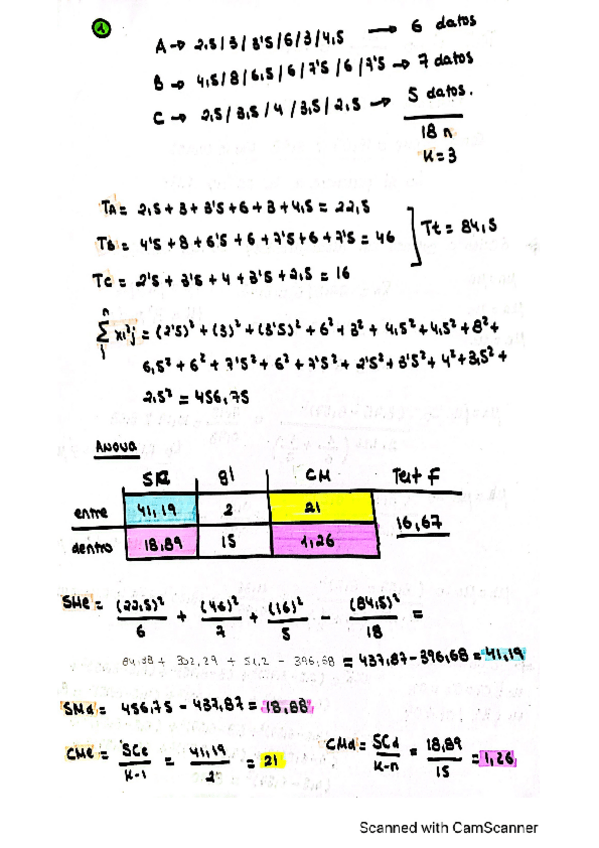 1
A → 2.5 / 3 / 3'5 / 6 / 3 / 4,5 → 6 datos
B → 4,5 / 8 / 6,5 / 6 / 7'5 / 6 / 7'5 → 7 datos
C → 2,5 / 3,5 / 4 / 3,5 / 2,5 → 5 datos.
18 n
K=3
TA = 2,5 + 3 + 3'5 + 6 + 3 + 4,5 = 22,5
TB = 4'5 + 8 + 6'5 + 6 + 7'5 + 6 + 7'5 = 46 ] Tt = 84,5
TC = 2'5 + 3'5 + 4 + 3'5 + 2,5 = 16
n
Σ xi²j = (2'5)² + (3)² + (3'5)² + 6² + 3² + 4,5² + 4,5² + 8² +
1
6,5² + 6² + 7'5² + 6² + 7'5² + 2'5² + 3'5² + 4² + 3,5² +
2,5² = 456,75
Anova
gl CM Test F
entre 41,19 2 21 16,67
dentro 18,89 15 1,26
SMe = (22,5)²/6 + (46)²/7 + (16)²/5 − (84,5)²/18 =
84,38 + 302,29 + 51,2 − 396,68 = 437,87 − 396,68 = 41,19
SMd = 456,75 − 437,87 = 18,88
CMe = SCe/K-1 = 41,19/2 = 21 CMd = SCd/K-n = 18,89/15 = 1,26
Scanned with CamScanner